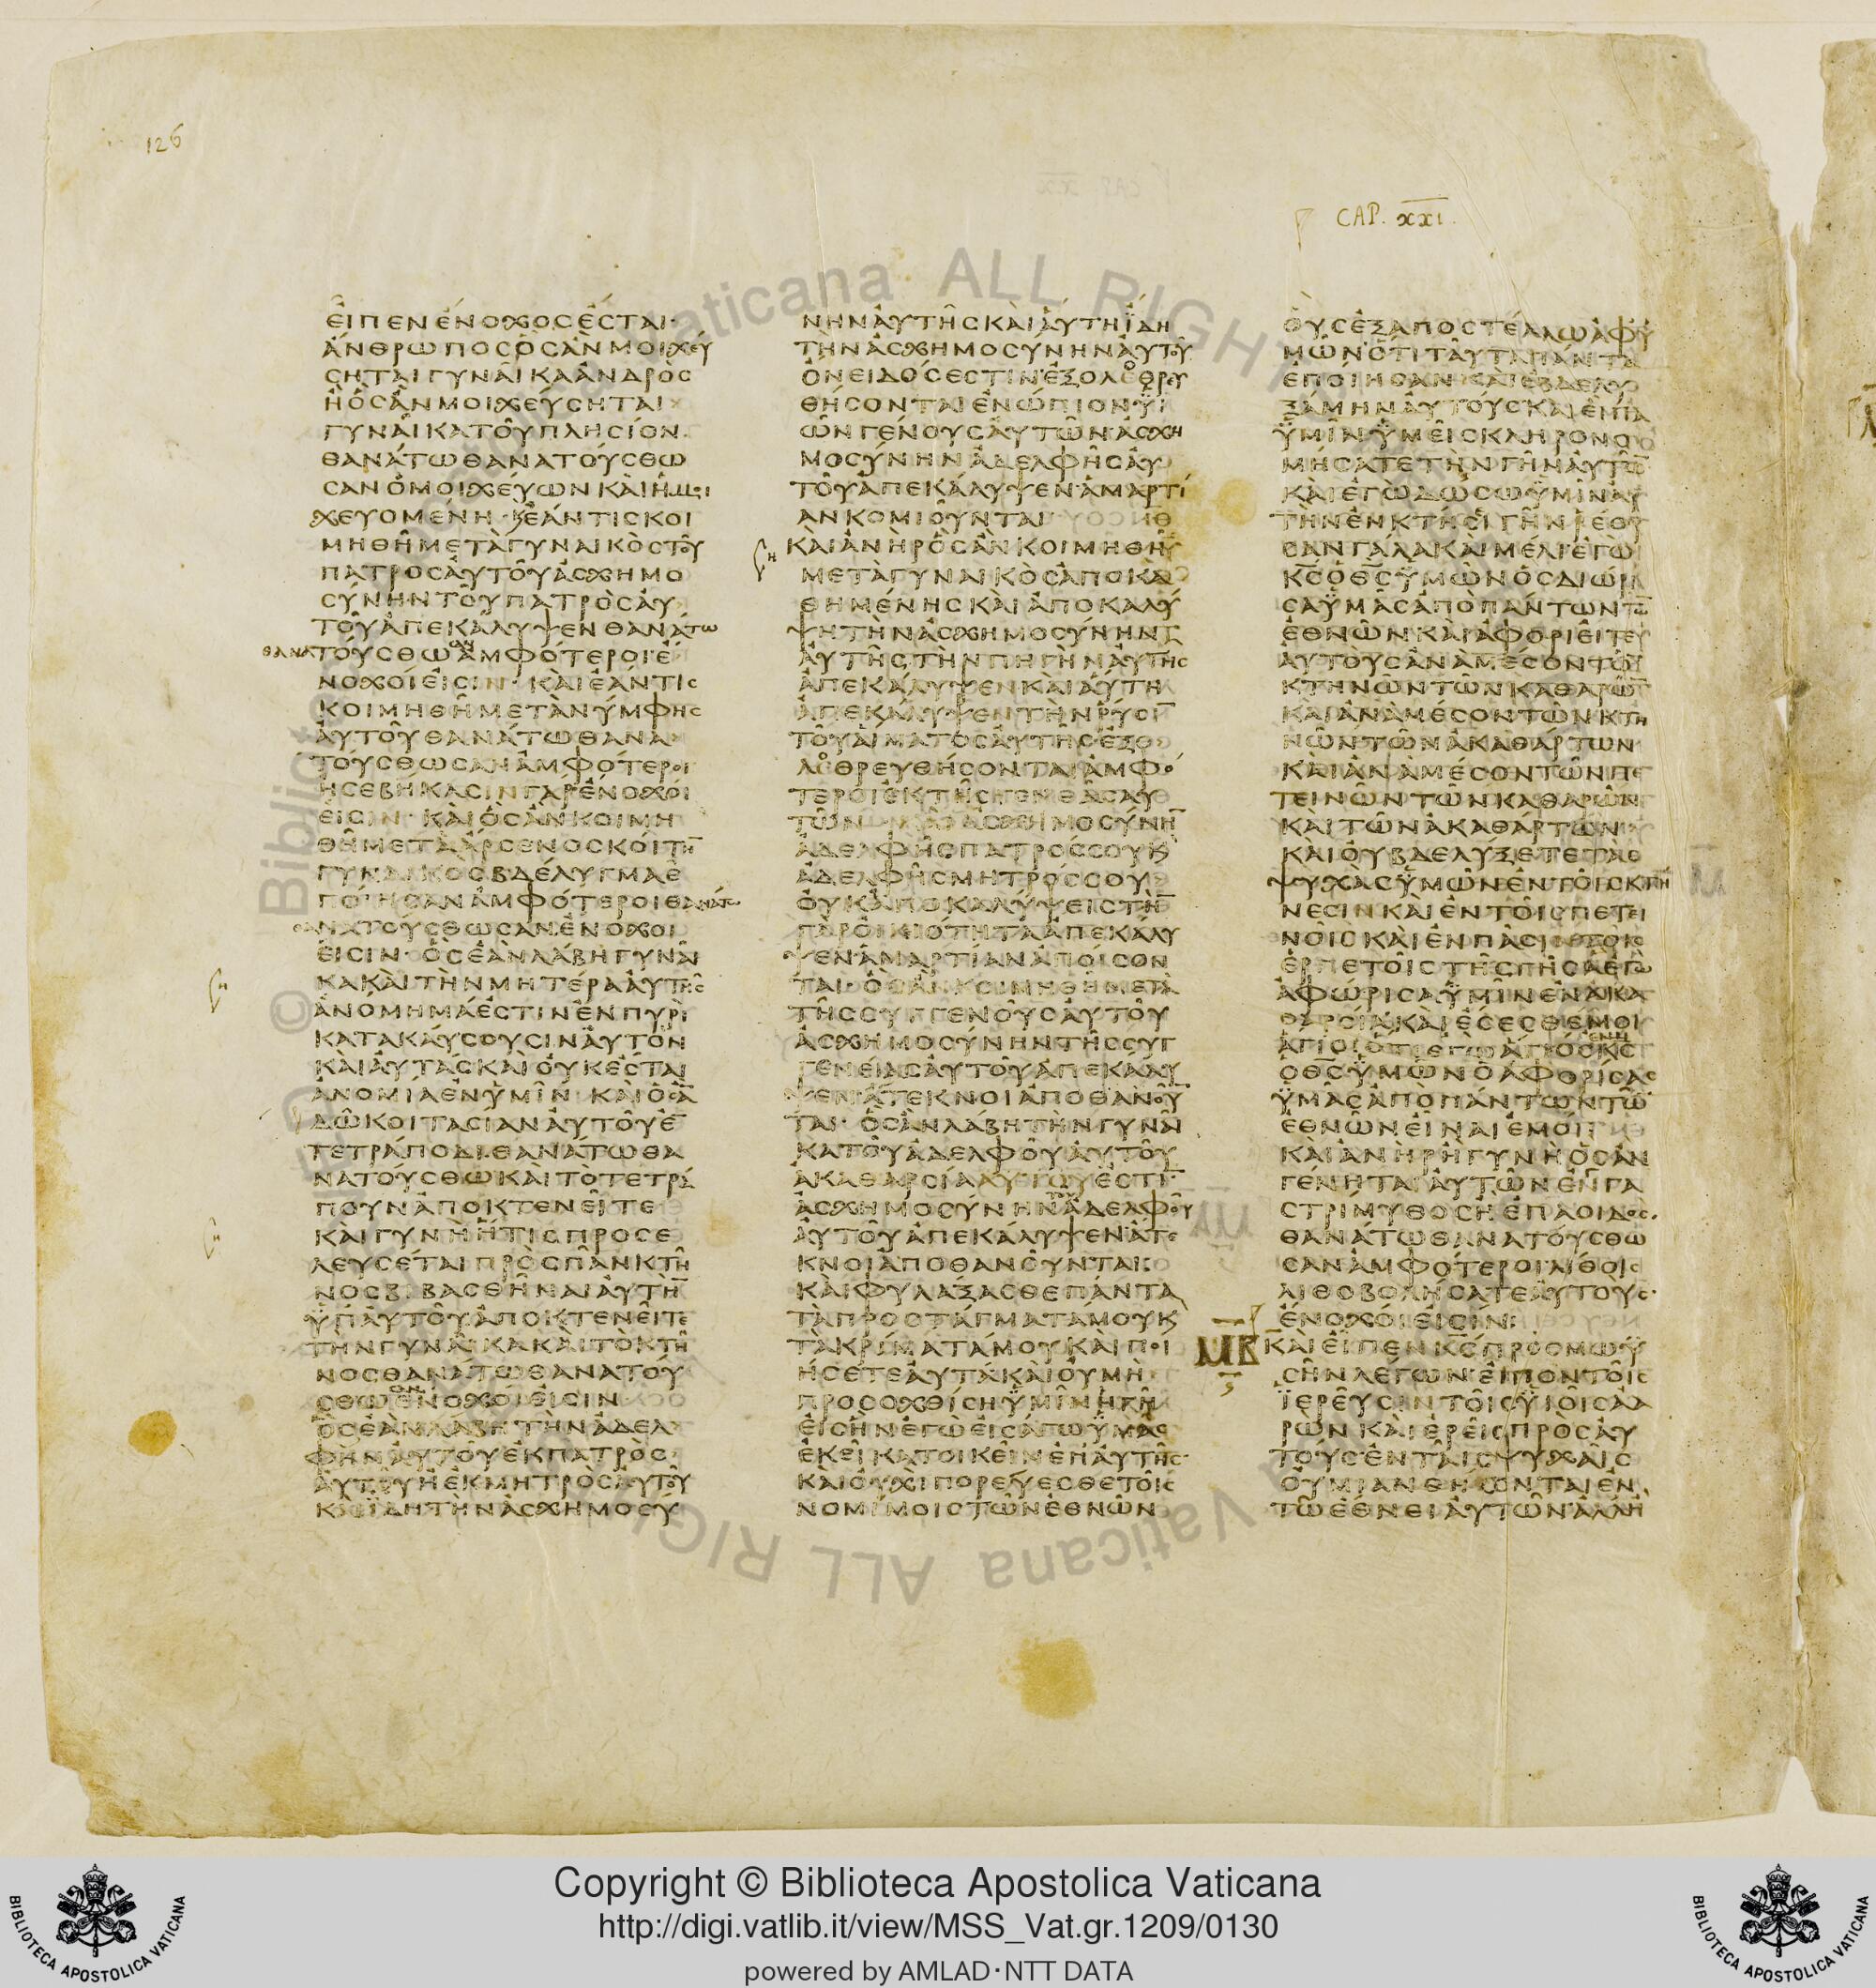 126
CAP. XXI.
ΕΙΠΕΝ ΕΝΟΧΟΣ ΕΣΤΑΙ
ΑΝΘΡΩΠΟΣ ΟΣ ΑΝ ΜΟΙΧΕΥ
ΣΗΤΑΙ ΓΥΝΑΙΚΑ ΑΝΔΡΟΣ
Η ΟΣ ΑΝ ΜΟΙΧΕΥΣΗΤΑΙ
ΓΥΝΑΙΚΑ ΤΟΥ ΠΛΗΣΙΟΝ
ΘΑΝΑΤΩ ΘΑΝΑΤΟΥΣΘΩ
ΣΑΝ Ο ΜΟΙΧΕΥΩΝ ΚΑΙ Η ΜΟΙ
ΧΕΥΟΜΕΝΗ ΚΕΑΝ ΤΙΣ ΚΟΙ
ΜΗΘΗ ΜΕΤΑ ΓΥΝΑΙΚΟΣ ΤΟΥ
ΠΑΤΡΟΣ ΑΥΤΟΥ ΑΣΧΗΜΟ
ΣΥΝΗΝ ΤΟΥ ΠΑΤΡΟΣ ΑΥ
ΤΟΥ ΑΠΕΚΑΛΥΨΕΝ ΘΑΝΑΤΩ
ΘΑΝΑΤΟΥΣΘΩΣΑΝ ΑΜΦΟΤΕΡΟΙ Ε
ΝΟΧΟΙ ΕΙΣΙΝ ΚΑΙ ΕΑΝ ΤΙΣ
ΚΟΙΜΗΘΗ ΜΕΤΑ ΝΥΜΦΗΣ
ΑΥΤΟΥ ΘΑΝΑΤΩ ΘΑΝΑ
ΤΟΥΣΘΩΣΑΝ ΑΜΦΟΤΕΡΟΙ
ΗΣΕΒΗΚΑΣΙΝ ΓΑΡ ΕΝΟΧΟΙ
ΕΙΣΙΝ ΚΑΙ ΟΣ ΑΝ ΚΟΙΜΗ
ΘΗ ΜΕΤΑ ΑΡΣΕΝΟΣ ΚΟΙΤΗ̅
ΓΥΝΑΙΚΟΣ ΒΔΕΛΥΓΜΑ Ε
ΠΟΙΗΣΑΝ ΑΜΦΟΤΕΡΟΙ ΘΑΝΑΤΩ
ΘΑΝΑΤΟΥΣΘΩΣΑΝ ΕΝΟΧΟΙ
ΕΙΣΙΝ ΟΣ ΕΑΝ ΛΑΒΗ ΓΥΝΑΙ
ΚΑ ΚΑΙ ΤΗΝ ΜΗΤΕΡΑ ΑΥΤΗΣ
ΑΝΟΜΗΜΑ ΕΣΤΙΝ ΕΝ ΠΥΡΙ
ΚΑΤΑΚΑΥΣΟΥΣΙΝ ΑΥΤΟΝ
ΚΑΙ ΑΥΤΑΣ ΚΑΙ ΟΥΚ ΕΣΤΑΙ
ΑΝΟΜΙΑ ΕΝ ΥΜΙΝ ΚΑΙ ΟΣ Α̅
ΔΩ ΚΟΙΤΑΣΙΑΝ ΑΥΤΟΥ Ε̅
ΤΕΤΡΑΠΟΔΙ ΘΑΝΑΤΩ ΘΑ
ΝΑΤΟΥΣΘΩ ΚΑΙ ΤΟ ΤΕΤΡΑ
ΠΟΥΝ ΑΠΟΚΤΕΝΕΙΤΕ
ΚΑΙ ΓΥΝΗ ΗΤΙΣ ΠΡΟΣΕ
ΛΕΥΣΕΤΑΙ ΠΡΟΣ ΠΑΝ ΚΤΗ
ΝΟΣ ΒΙΒΑΣΘΗΝΑΙ ΑΥΤΗ̅
ΫΠ ΑΥΤΟΥ ΑΠΟΚΤΕΝΕΙΤΕ
ΤΗΝ ΓΥΝΑΙΚΑ ΚΑΙ ΤΟ ΚΤΗ
ΝΟΣ ΘΑΝΑΤΩ ΘΑΝΑΤΟΥ
ΣΘΩΣΑΝ ΕΝΟΧΟΙ ΕΙΣΙΝ
ΟΣ ΕΑΝ ΛΑΒΗ ΤΗΝ ΑΔΕΛ
ΦΗΝ ΑΥΤΟΥ ΕΚ ΠΑΤΡΟΣ
ΑΥΤΟΥ Η ΕΚ ΜΗΤΡΟΣ ΑΥΤΟΥ
ΚΑΙ ΪΔΗ ΤΗΝ ΑΣΧΗΜΟΣΥ
ΝΗΝ ΑΥΤΗΣ ΚΑΙ ΑΥΤΗ ΪΔΗ
ΤΗΝ ΑΣΧΗΜΟΣΥΝΗΝ ΑΥΤΟΥ
ΟΝΕΙΔΟΣ ΕΣΤΙΝ ΕΞΟΛΟΘΡΕΥ
ΘΗΣΟΝΤΑΙ ΕΝΩΠΙΟΝ ΫΙ
ΩΝ ΓΕΝΟΥΣ ΑΥΤΩΝ ΑΣΧΗ
ΜΟΣΥΝΗΝ ΑΔΕΛΦΗΣ ΑΥ
ΤΟΥ ΑΠΕΚΑΛΥΨΕΝ ΑΜΑΡΤΙ
ΑΝ ΚΟΜΙΟΥΝΤΑΙ
ΚΑΙ ΑΝΗΡ ΟΣ ΑΝ ΚΟΙΜΗΘΗ
ΜΕΤΑ ΓΥΝΑΙΚΟΣ ΑΠΟΚΑ
ΘΗΜΕΝΗΣ ΚΑΙ ΑΠΟΚΑΛΥ
ΨΗ ΤΗΝ ΑΣΧΗΜΟΣΥΝΗΝ
ΑΥΤΗΣ ΤΗΝ ΠΗΓΗΝ ΑΥΤΗΣ
ΑΠΕΚΑΛΥΨΕΝ ΚΑΙ ΑΥΤΗ
ΑΠΕΚΑΛΥΨΕΝ ΤΗΝ ΡΥΣΙ̅
ΤΟΥ ΑΙΜΑΤΟΣ ΑΥΤΗΣ ΕΞΟ
ΛΟΘΡΕΥΘΗΣΟΝΤΑΙ ΑΜΦΟ
ΤΕΡΟΙ ΕΚ ΤΗΣ ΓΕΝΕΑΣ ΑΥ
ΤΩΝ ΚΑΙ ΑΣΧΗΜΟΣΥΝΗ̅
ΑΔΕΛΦΗΣ ΠΑΤΡΟΣ ΣΟΥ Κ
ΑΔΕΛΦΗΣ ΜΗΤΡΟΣ ΣΟΥ
ΟΥΚ ΑΠΟΚΑΛΥΨΕΙΣ ΤΗ̅
ΓΑΡ ΟΙΚΙΟΤΗΤΑ ΑΠΕΚΑΛΥ
ΨΕΝ ΑΜΑΡΤΙΑΝ ΑΠΟΙΣΟΝ
ΤΑΙ ΟΣ ΑΝ ΚΟΙΜΗΘΗ ΜΕΤΑ
ΤΗΣ ΣΥΓΓΕΝΟΥΣ ΑΥΤΟΥ
ΑΣΧΗΜΟΣΥΝΗΝ ΤΗΣ ΣΥΓ
ΓΕΝΕΙΑΣ ΑΥΤΟΥ ΑΠΕΚΑΛΥ
ΨΕΝ ΑΤΕΚΝΟΙ ΑΠΟΘΑΝΟΥ̅
ΤΑΙ ΟΣ ΑΝ ΛΑΒΗ ΤΗΝ ΓΥΝΑΙ
ΚΑ ΤΟΥ ΑΔΕΛΦΟΥ ΑΥΤΟΥ
ΑΚΑΘΑΡΣΙΑ ΕΣΤΙ̅
ΑΣΧΗΜΟΣΥΝΗΝ ΤΟΥ ΑΔΕΛΦΟΥ
ΑΥΤΟΥ ΑΠΕΚΑΛΥΨΕΝ ΑΤΕ
ΚΝΟΙ ΑΠΟΘΑΝΟΥΝΤΑΙ
ΚΑΙ ΦΥΛΑΞΑΣΘΕ ΠΑΝΤΑ
ΤΑ ΠΡΟΣΤΑΓΜΑΤΑ ΜΟΥ Κ
ΤΑ ΚΡΙΜΑΤΑ ΜΟΥ ΚΑΙ ΠΟΙ
ΗΣΕΤΕ ΑΥΤΑ ΚΑΙ ΟΥ ΜΗ
ΠΡΟΣΟΧΘΙΣΗ ΫΜΙΝ Η ΓΗ
ΕΙΣ ΗΝ ΕΓΩ ΕΙΣΑΓΩ ΫΜΑΣ
ΕΚΕΙ ΚΑΤΟΙΚΕΙΝ ΕΠ ΑΥΤΗΣ
ΚΑΙ ΟΥΧΙ ΠΟΡΕΥΕΣΘΕ ΤΟΙΣ
ΝΟΜΙΜΟΙΣ ΤΩΝ ΕΘΝΩΝ
ΟΥΣ ΕΞΑΠΟΣΤΕΛΛΩ ΑΦ Υ
ΜΩΝ ΟΤΙ ΤΑΥΤΑ ΠΑΝΤΑ
ΕΠΟΙΗΣΑΝ ΚΑΙ ΕΒΔΕΛΥ
ΞΑΜΗΝ ΑΥΤΟΥΣ ΚΑΙ ΕΙΠΑ
ΫΜΙΝ ΫΜΕΙΣ ΚΛΗΡΟΝΟ
ΜΗΣΑΤΕ ΤΗΝ ΓΗΝ ΑΥΤΩ̅
ΚΑΙ ΕΓΩ ΔΩΣΩ ΫΜΙΝ ΑΥ
ΤΗΝ ΕΝ ΚΤΗΣΙ ΓΗΝ ΡΕΟΥ
ΣΑΝ ΓΑΛΑ ΚΑΙ ΜΕΛΙ ΕΓΩ
ΚΣ Ο ΘΣ ΫΜΩΝ ΟΣ ΔΙΩΡΙ
ΣΑ ΫΜΑΣ ΑΠΟ ΠΑΝΤΩΝ ΤΩ̅
ΕΘΝΩΝ ΚΑΙ ΑΦΟΡΙΕΙΤΕ
ΑΥΤΟΥΣ ΑΝΑ ΜΕΣΟΝ ΤΩΝ
ΚΤΗΝΩΝ ΤΩΝ ΚΑΘΑΡΩ̅
ΚΑΙ ΑΝΑ ΜΕΣΟΝ ΤΩΝ ΚΤΗ
ΝΩΝ ΤΩΝ ΑΚΑΘΑΡΤΩΝ
ΚΑΙ ΑΝΑ ΜΕΣΟΝ ΤΩΝ ΠΕ
ΤΕΙΝΩΝ ΤΩΝ ΚΑΘΑΡΩΝ
ΚΑΙ ΤΩΝ ΑΚΑΘΑΡΤΩΝ
ΚΑΙ ΟΥ ΒΔΕΛΥΞΕΤΕ ΤΑΣ
ΨΥΧΑΣ ΫΜΩΝ ΕΝ ΤΟΙΣ ΚΤΗ
ΝΕΣΙΝ ΚΑΙ ΕΝ ΤΟΙΣ ΠΕΤΕΙ
ΝΟΙΣ ΚΑΙ ΕΝ ΠΑΣΙΝ ΤΟΙΣ
ΕΡΠΕΤΟΙΣ ΤΗΣ ΓΗΣ Α ΕΓΩ
ΑΦΩΡΙΣΑ ΫΜΙΝ ΕΝ ΑΚΑ
ΘΑΡΣΙΑ ΚΑΙ ΕΣΕΣΘΕ ΜΟΙ
ΑΓΙΟΙ ΟΤΙ ΕΓΩ ΑΓΙΟΣ ΚΣ
Ο ΘΣ ΫΜΩΝ Ο ΑΦΟΡΙΣΑΣ
ΫΜΑΣ ΑΠΟ ΠΑΝΤΩΝ ΤΩ̅
ΕΘΝΩΝ ΕΙΝΑΙ ΕΜΟΙ
ΚΑΙ ΑΝΗΡ Η ΓΥΝΗ ΟΣ ΑΝ
ΓΕΝΗΤΑΙ ΑΥΤΩΝ ΕΝΓΑ
ΣΤΡΙΜΥΘΟΣ Η ΕΠΑΟΙΔΟΣ
ΘΑΝΑΤΩ ΘΑΝΑΤΟΥΣΘΩ
ΣΑΝ ΑΜΦΟΤΕΡΟΙ ΛΙΘΟΙΣ
ΛΙΘΟΒΟΛΗΣΑΤΕ ΑΥΤΟΥΣ
ΕΝΟΧΟΙ ΕΙΣΙΝ
ΜΒ ΚΑΙ ΕΙΠΕΝ ΚΣ ΠΡΟΣ ΜΩΥ
ΣΗΝ ΛΕΓΩΝ ΕΙΠΟΝ ΤΟΙΣ
ΪΕΡΕΥΣΙΝ ΤΟΙΣ ΫΙΟΙΣ ΑΑ
ΡΩΝ ΚΑΙ ΕΡΕΙΣ ΠΡΟΣ ΑΥ
ΤΟΥΣ ΕΝ ΤΑΙΣ ΨΥΧΑΙΣ
ΟΥ ΜΙΑΝΘΗΣΟΝΤΑΙ ΕΝ
ΤΩ ΕΘΝΕΙ ΑΥΤΩΝ ΑΛΛ Η
Copyright © Biblioteca Apostolica Vaticana
http://digi.vatlib.it/view/MSS_Vat.gr.1209/0130
powered by AMLAD·NTT DATA
BIBLIOTECA APOSTOLICA VATICANA
BIBLIOTECA APOSTOLICA VATICANA